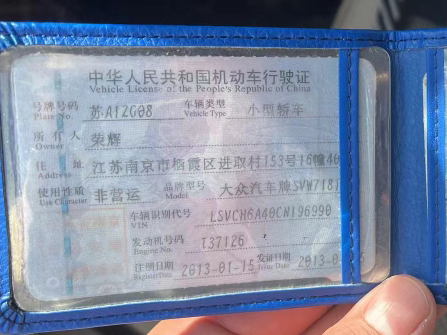 中华人民共和国机动车行驶证
Vehicle License of the People's Republic of China
号牌号码 苏A12G08 车辆类型 小型轿车
Plate No. Vehicle Type
所有人 荣辉
Owner
住址 江苏南京市栖霞区进取村153号16幢40
Address
使用性质 非营运 品牌型号 大众汽车牌SVW7181
Use Character Model
车辆识别代号 LSVCH6A40CN196990
VIN
发动机号码 T37126
Engine No.
注册日期 2013-01-15 发证日期 2013-0
Register Date Issue Date